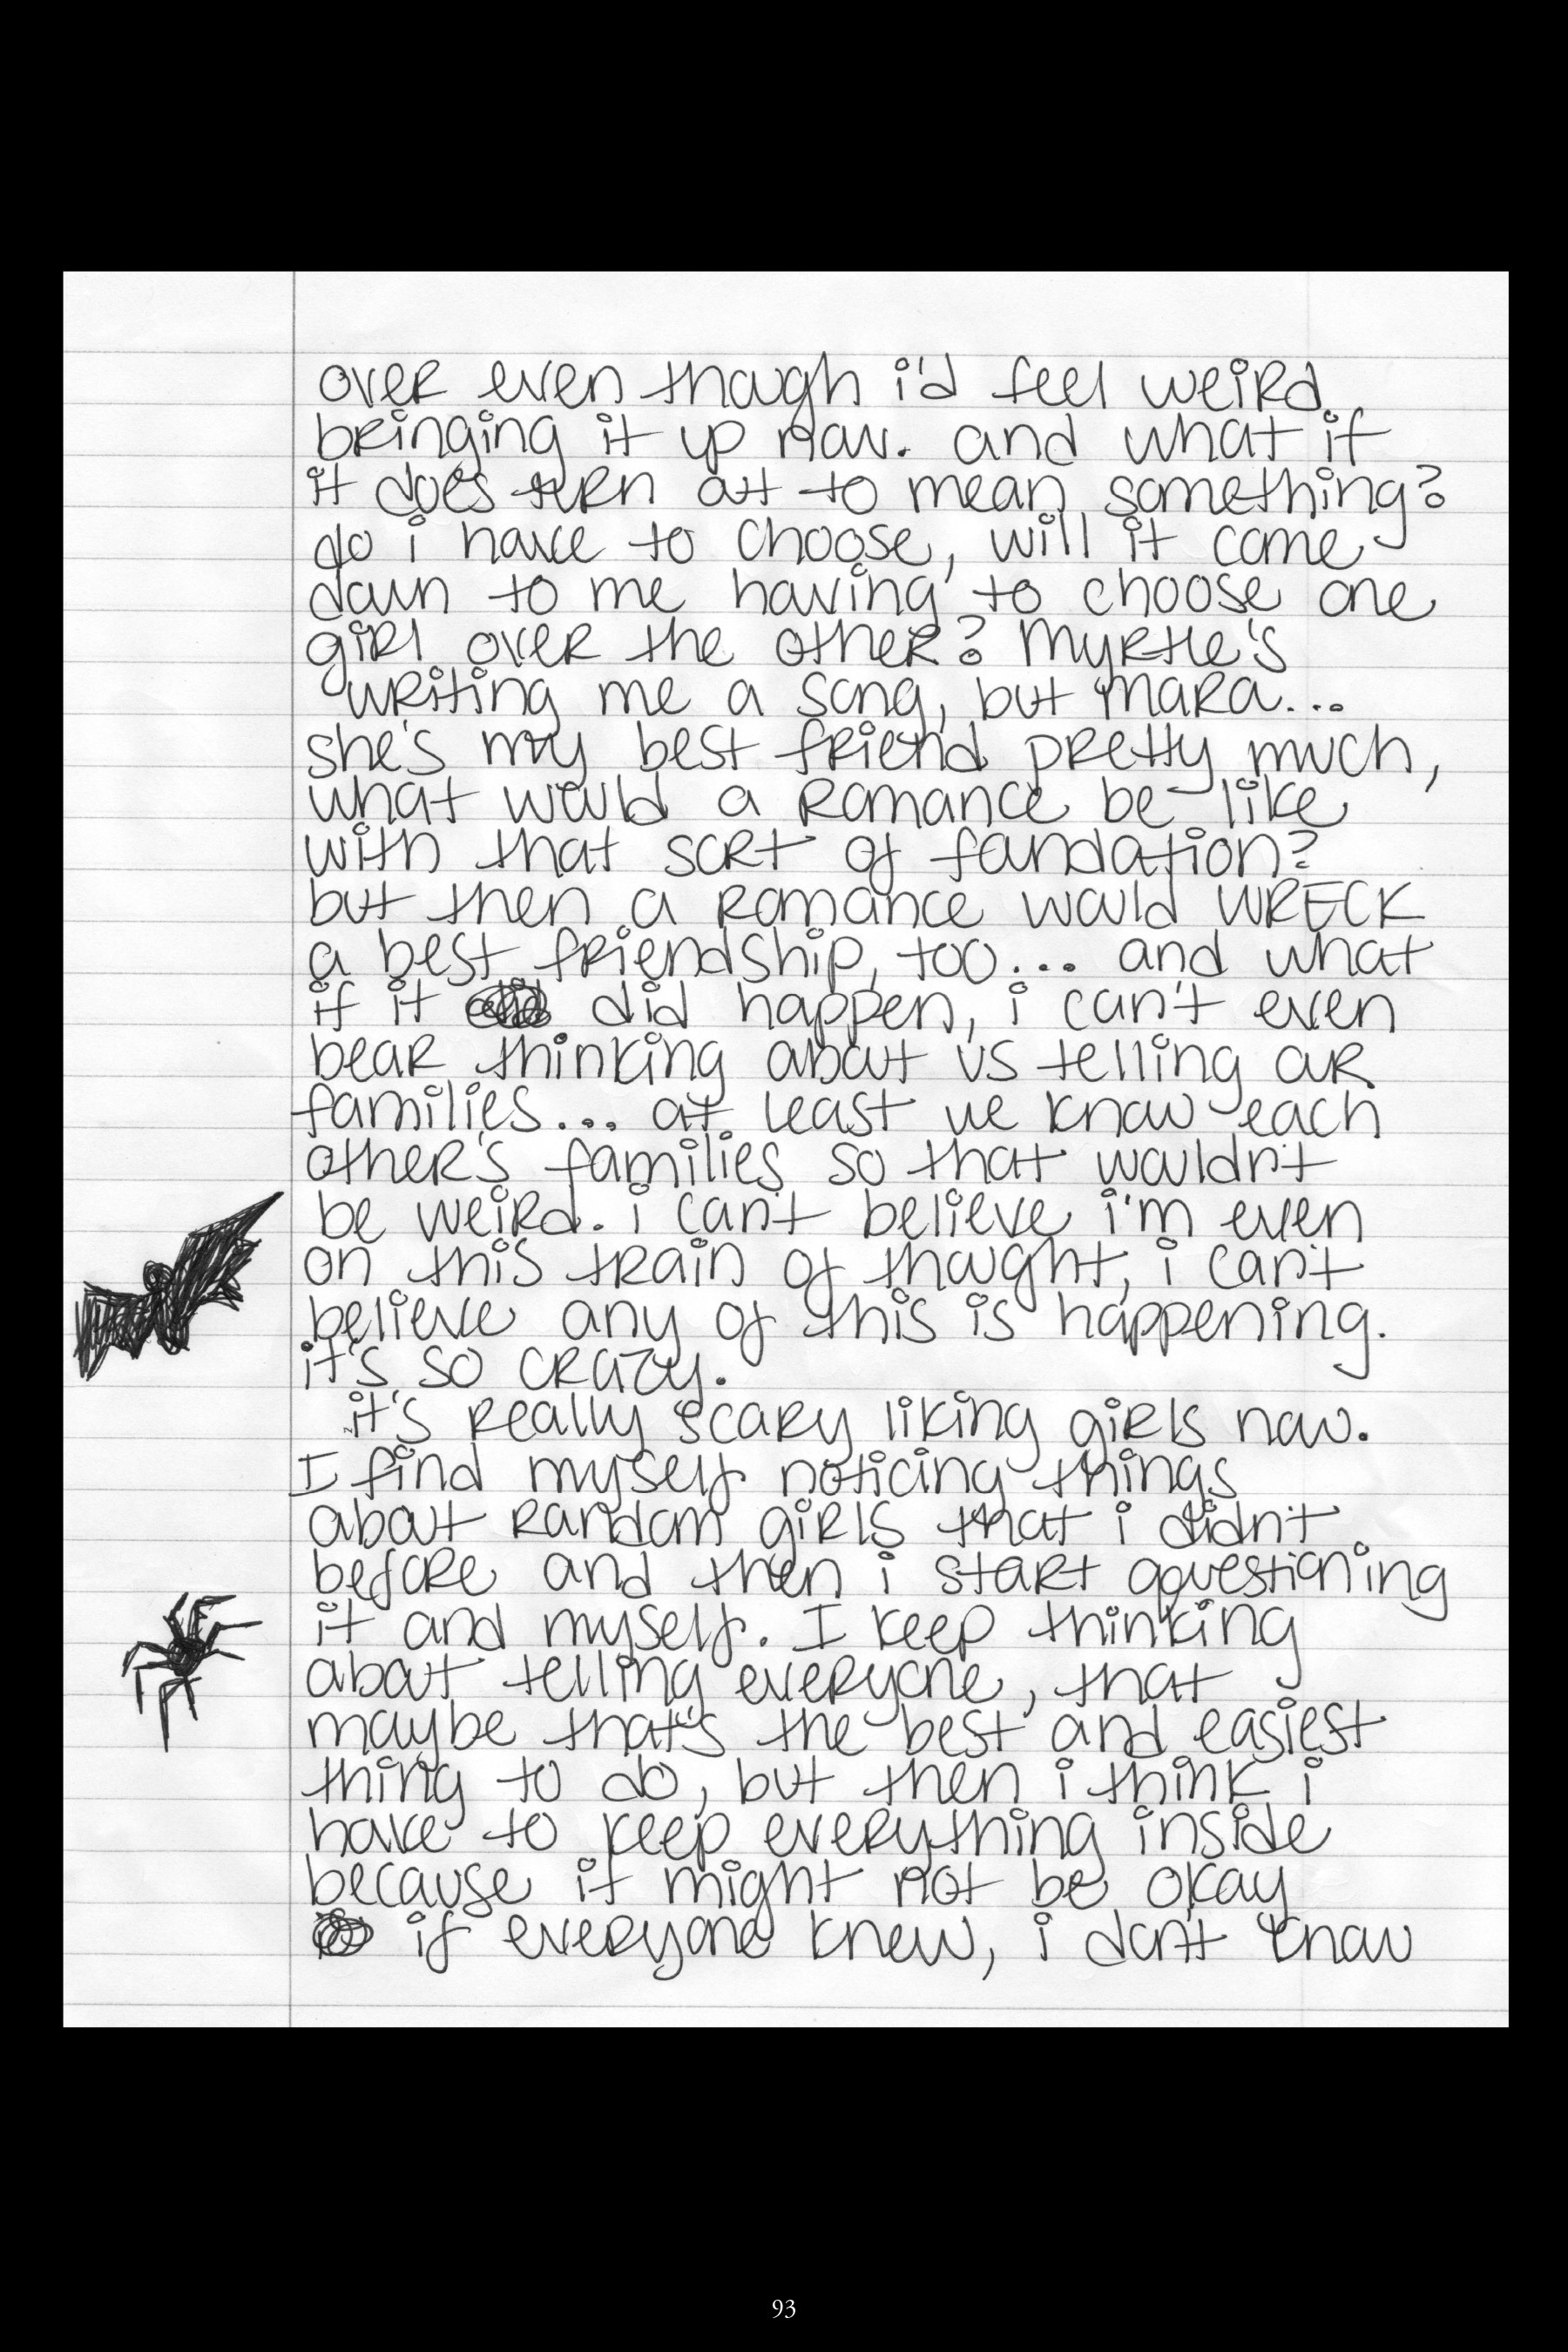 over even though i'd feel weird
bringing it up now. and what if
it does turn out to mean something?
do i have to choose, will it come
down to me having to choose one
girl over the other? Myrtle's
writing me a song, but Mara...
she's my best friend pretty much,
what would a romance be like
with that sort of foundation?
but then a romance would WRECK
a best friendship, too... and what
if it did happen, i can't even
bear thinking about us telling our
families... at least we know each
other's families so that wouldn't
be weird. i can't believe i'm even
on this train of thought, i can't
believe any of this is happening.
it's so crazy.
it's really scary liking girls now.
I find myself noticing things
about random girls that i didn't
before and then i start questioning
it and myself. I keep thinking
about telling everyone, that
maybe that's the best and easiest
thing to do, but then i think i
have to keep everything inside
because it might not be okay
if everyone knew, i don't know
93